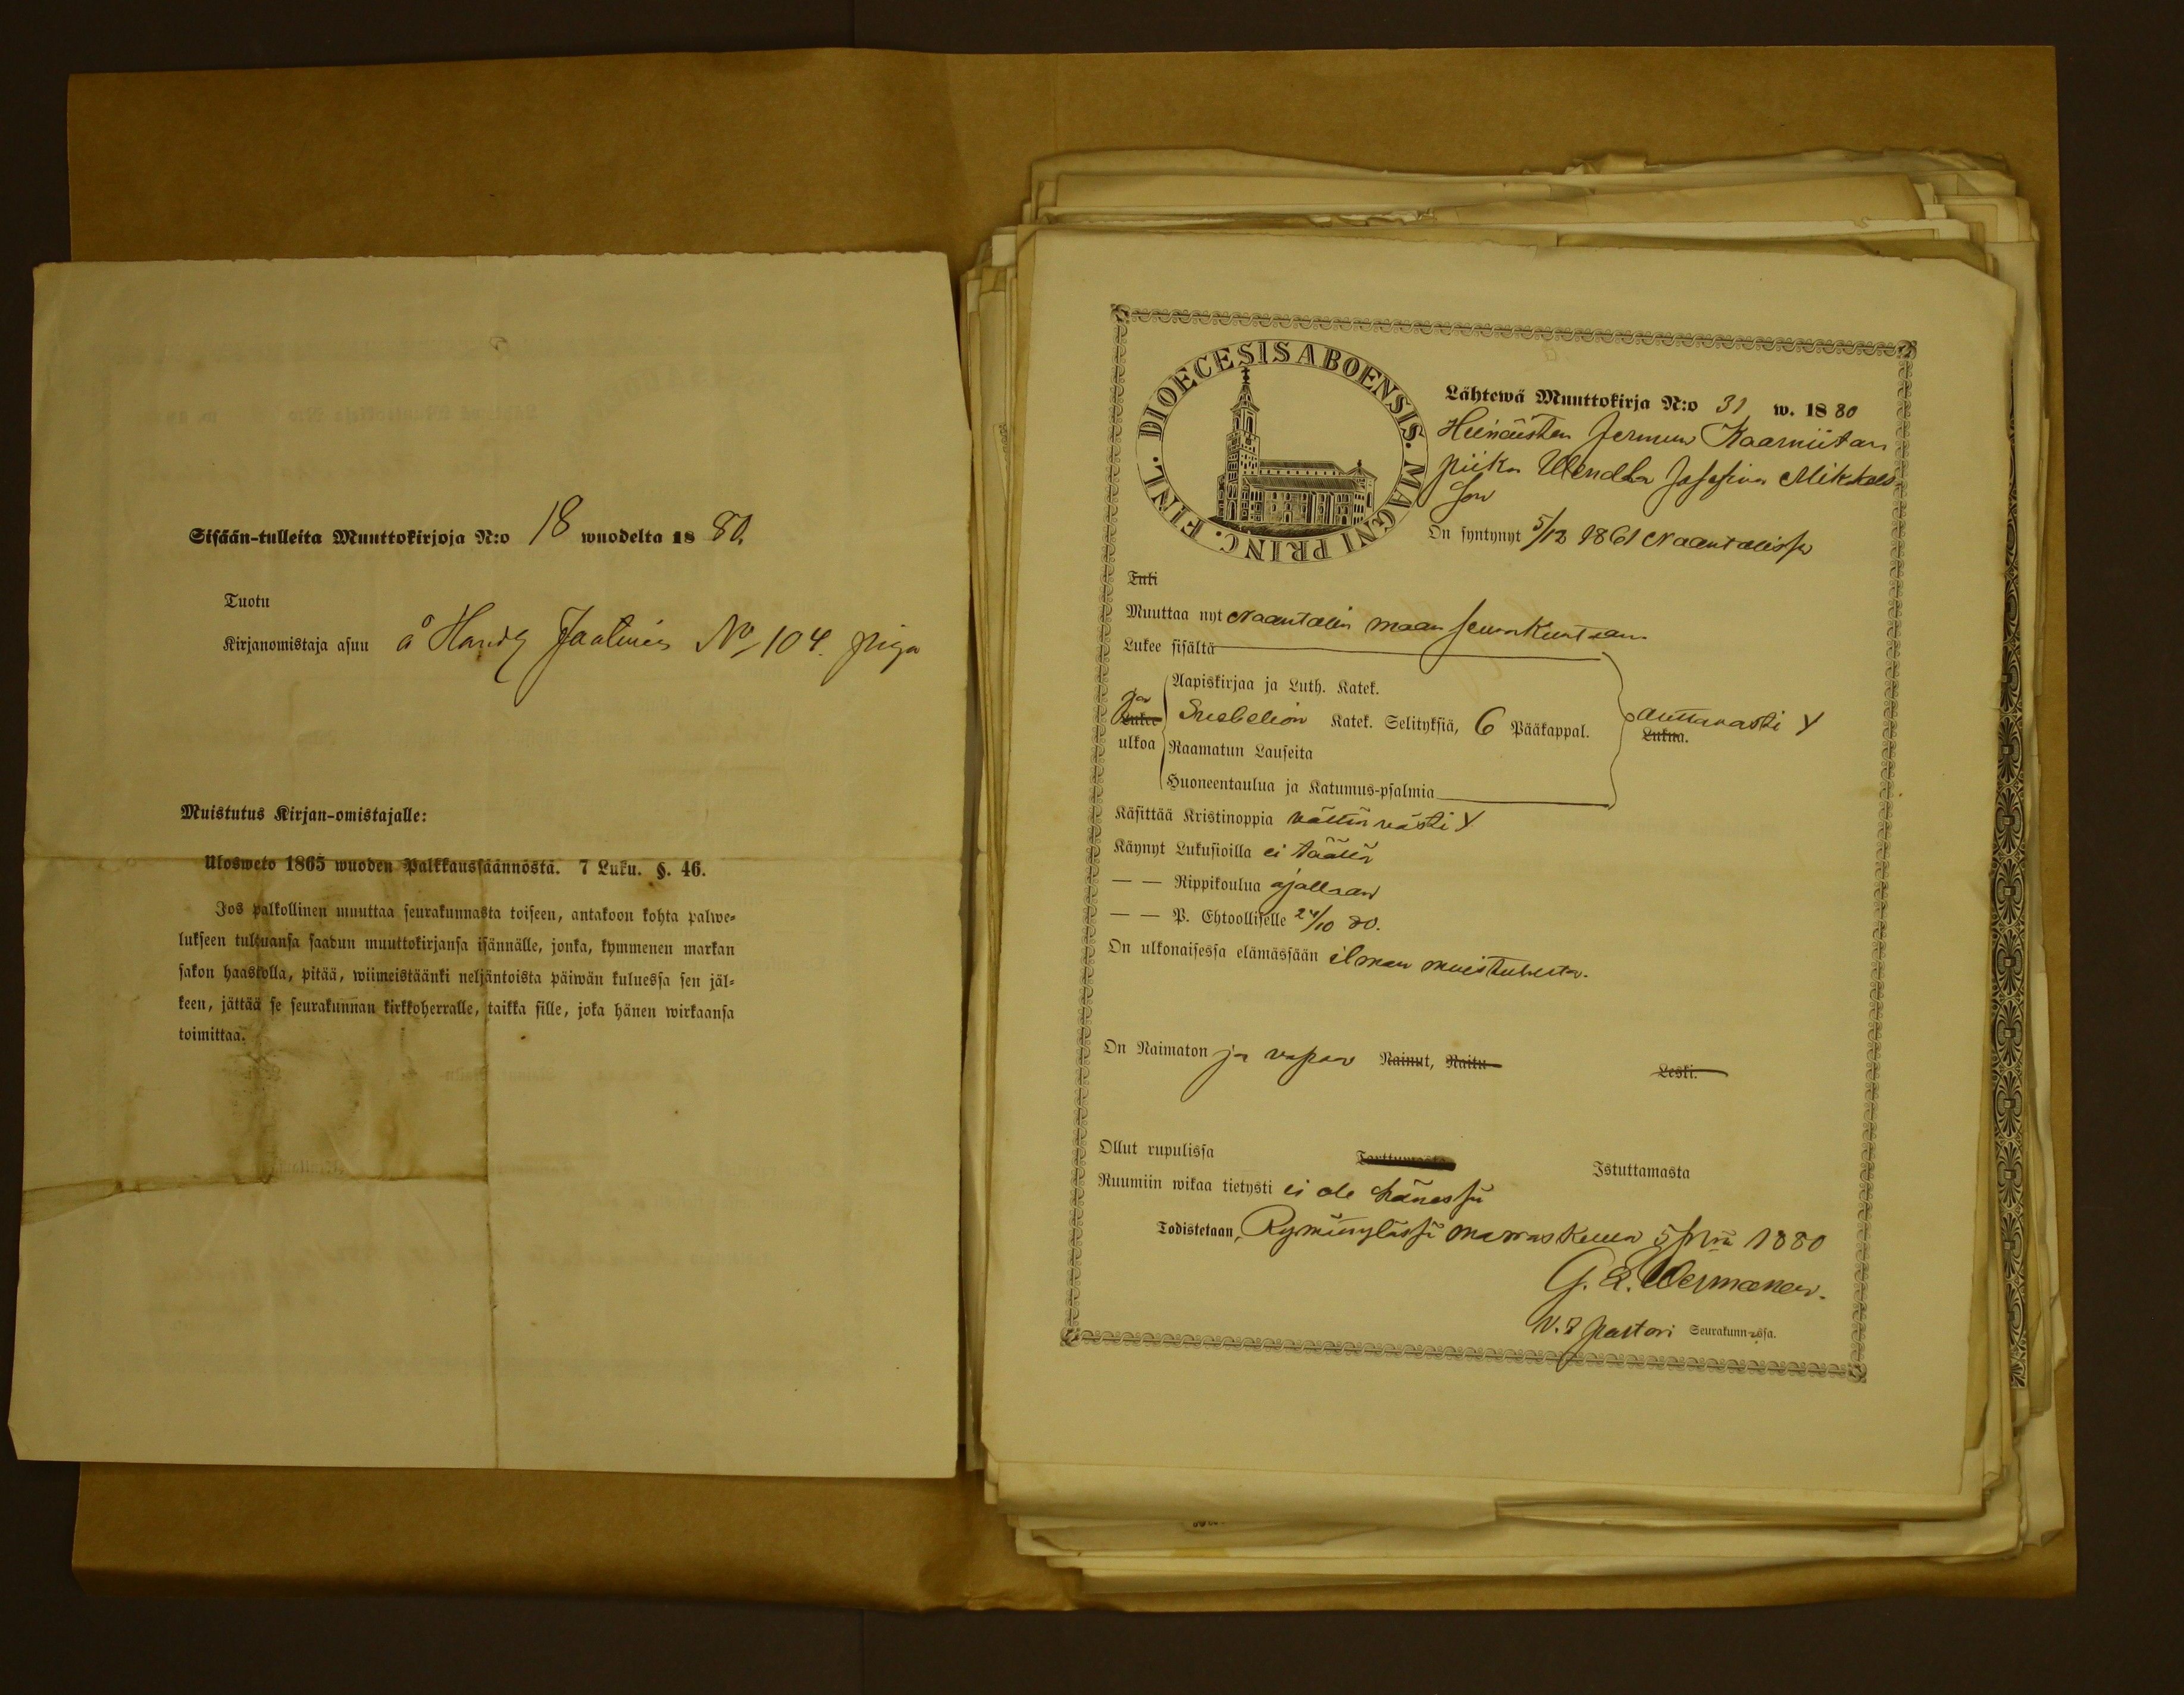 Sisään-tulleita Muuttokirjoja N:o 18 wuodelta 1880.
Tuotu
Kirjanomistaja asuu å Handz Jaalmis No 104. piga
Muistutus Kirjan-omistajalle:
Ulosweto 1865 wuoden Palkkaussäännöstä. 7 Luku. §. 46.
Jos palkollinen muuttaa seurakunnasta toiseen, antakoon kohta palwe-
lukseen tultuansa saadun muuttokirjansa isännälle, jonka, kymmenen markan
sakon haastolla, pitää, wiimeistäänki neljäntoista päiwän kuluessa sen jäl-
keen, jättää se seurakunnan kirkkoherralle, taikka sille, joka hänen wirkaansa
toimittaa.
DIOECESIS ABOENSIS. MAGNI PRINC. FINL.
Lähtewä Muuttokirja N:o 31 w. 1880
Heinäisten Kaarniitan
piika Wendla Josefina Mikkels
son
On syntynyt 5/12 1861 Naantalissa
Tuli
Muuttaa nyt Naantalin maan seurakuntaan
Lukee sisältä
Aapiskirjaa ja Luth. Katek.
ja
Lukee
ulkoa
Svebelion Katek. Selityksiä, 6 Pääkappal.
Raamatun Lauseita
Huoneentaulua ja Katumus-psalmia
auttavasti
Lukua.
Käsittää Kristinoppia välttävästi
Käynyt Lukusioilla ei täällä
— — Rippikoulua ajallaan
— — P. Ehtoolliselle 24/10 80.
On ulkonaisessa elämässään ilman muistutusta.
On Naimaton ja vapaa Nainut, Naitu Leski.
Ollut rupulissa Tarttumasta Istuttamasta
Ruumiin wikaa tietysti ei ole hänessä
Todistetaan, Rymättylässä marraskuun 5 p:nä 1880
G. E. Wermanen.
V. pastori Seurakunnassa.